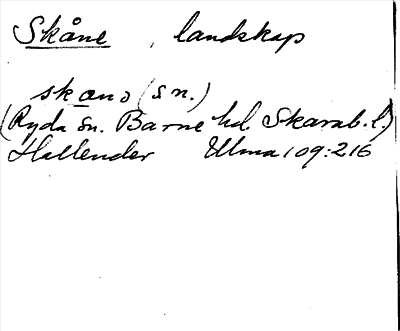 Skåne, landskap
skånɔ (s n.)
(Ryda sn. Barne hd. Skarab. l.)
Hallender Ulma 109:216